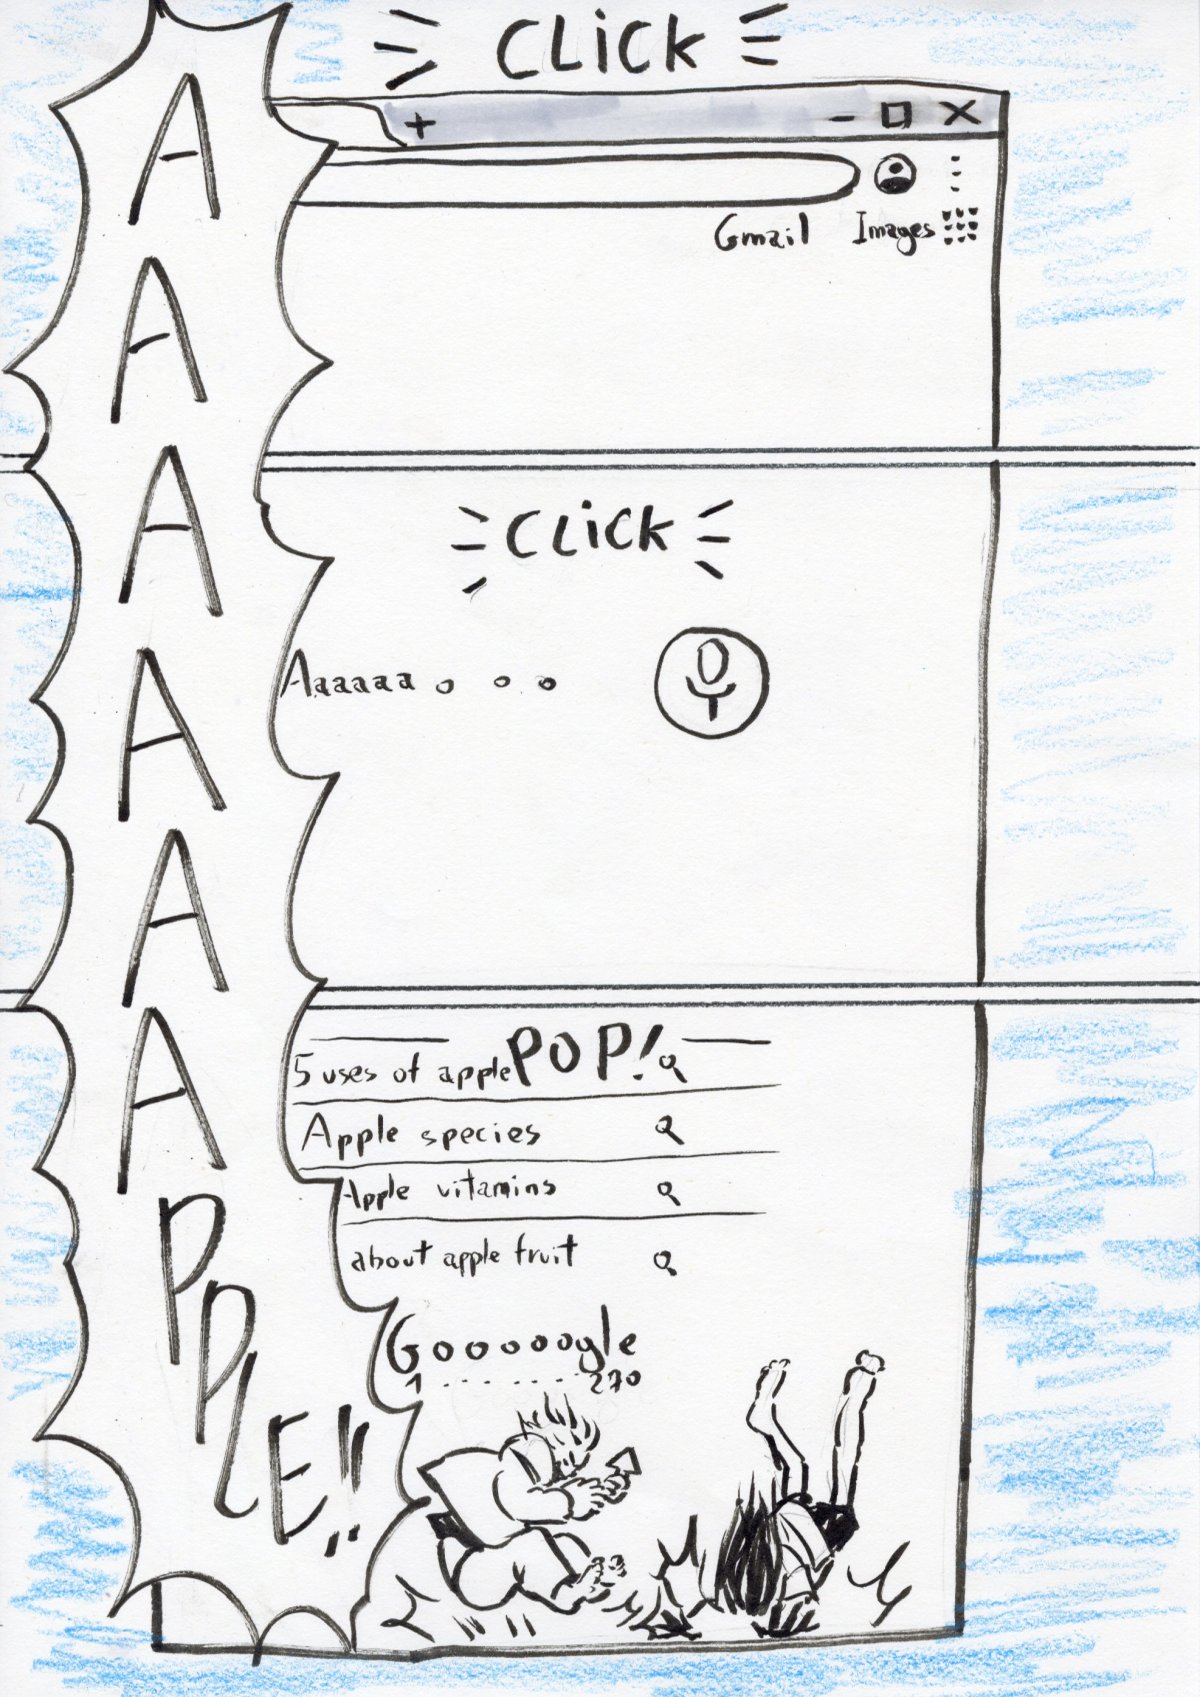 CLiCK
+ - X
Gmail Images
CLiCK
Aaaaaa...
POP!
5 uses of apple
Apple species
Apple vitamins
about apple fruit
Goooooogle
1 ........ 270
AAAAAAPPLE!!